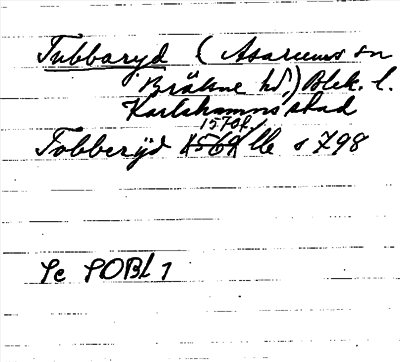 Tubbaryd (Asarums sn
Bräkne hd.) Blek. l.
Karlshamns stad
1570f.
Tobberÿd 1569 lle s 798
Se SOBl 1